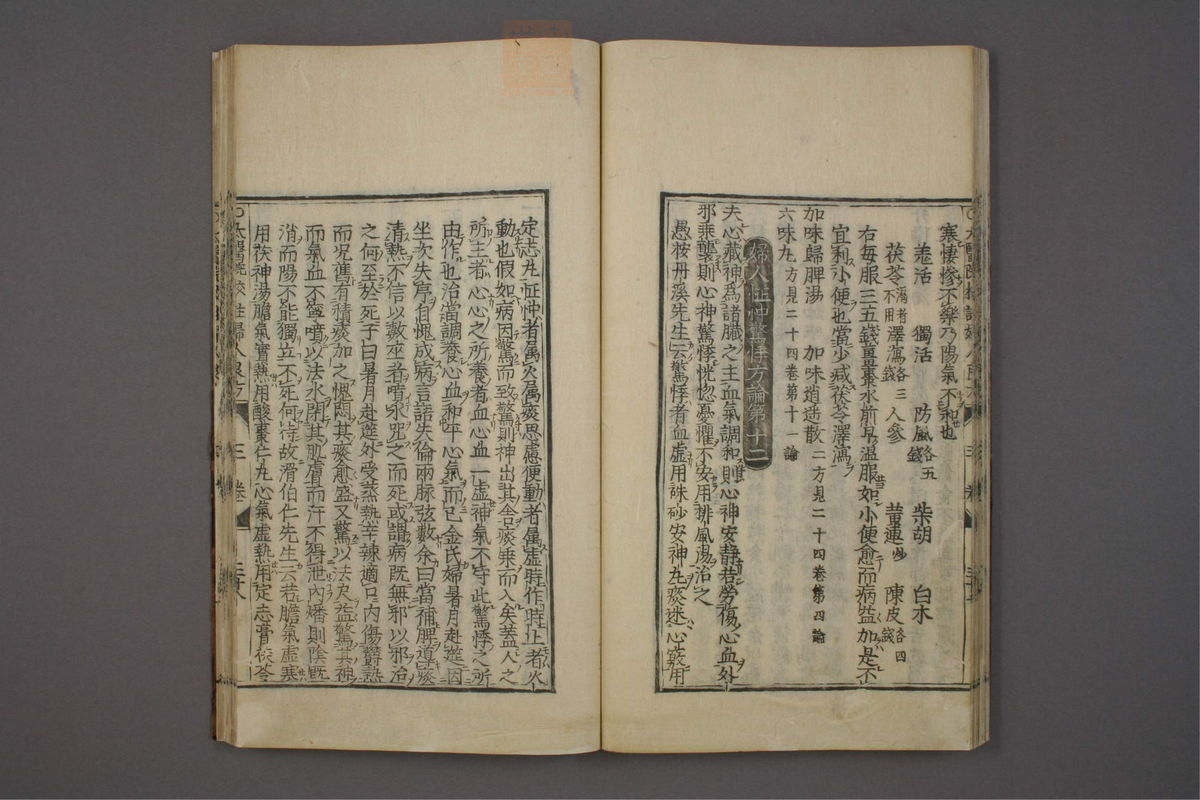 寒悽慘不樂乃陽氣不和也
羗活 獨活 防風各五錢 柴胡 白朮
茯苓渴者不用 澤瀉各三錢 人參 黄連炒 陳皮各四錢
右每服三五錢薑棗水煎早溫服如小便愈而病益加是不
宜利小便也當少减茯苓澤瀉
加味歸脾湯 加味逍遥散二方見二十四卷第四論
六味丸方見二十四卷第十一論
婦人怔忡驚悸方論第十二
夫心藏神為諸臟之主血氣調和則心神安静若勞傷心血外
邪乘襲則心神驚悸恍惚憂懼不安用排風湯治之
愚按丹溪先生云驚悸者血虚用硃砂安神丸痰迷心竅用
定志丸怔忡者属火属痰思慮便動者属虚時作時止者火
動也假如病因驚而致驚則神出其舎痰乗而入矣蓋人之
所主者心心之所養者血心血一虚神氣不守此驚悸之所
由作也治當調養心血和平心氣而已金氏婦暑月赴筵因
坐次失序自愧成病言語失倫兩脉弦數余曰當補脾導痰
清熱不信以數巫者噴水咒之而死或謂病既無邪以邪治
之何至於死予曰暑月赴筵外受蒸熱辛辣適口内傷欝熱
而况舊有積痰加之愧悶其痰愈盛又驚以法尺益驚其神
而氣血不寧噴以法水閉其肌膚而汗不得泄内燔則陰既
消而陽不能獨立不死何待故滑伯仁先生云若膽氣虚寒
用茯神湯膽氣實熱用酸棗仁丸心氣虚熱用定志膏茯苓
三卷